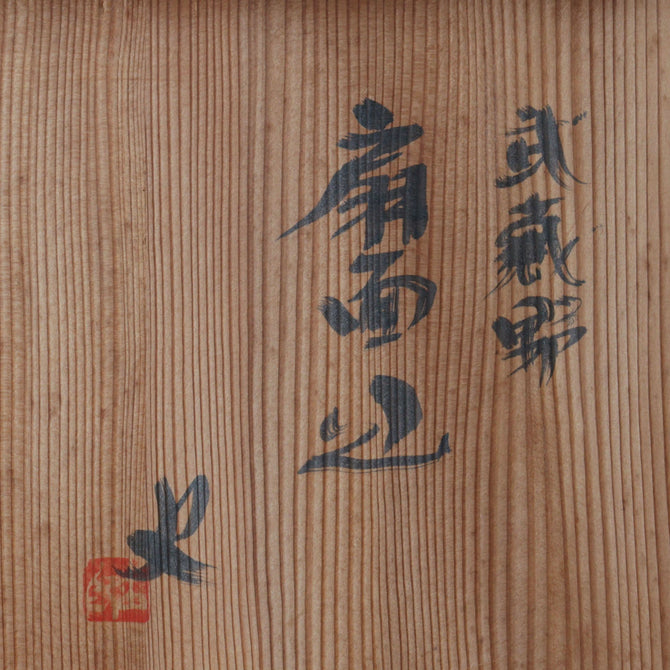 武蔵野
扇面皿